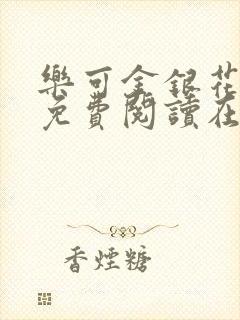 樂可金銀花
免費閱讀在
香煙糖